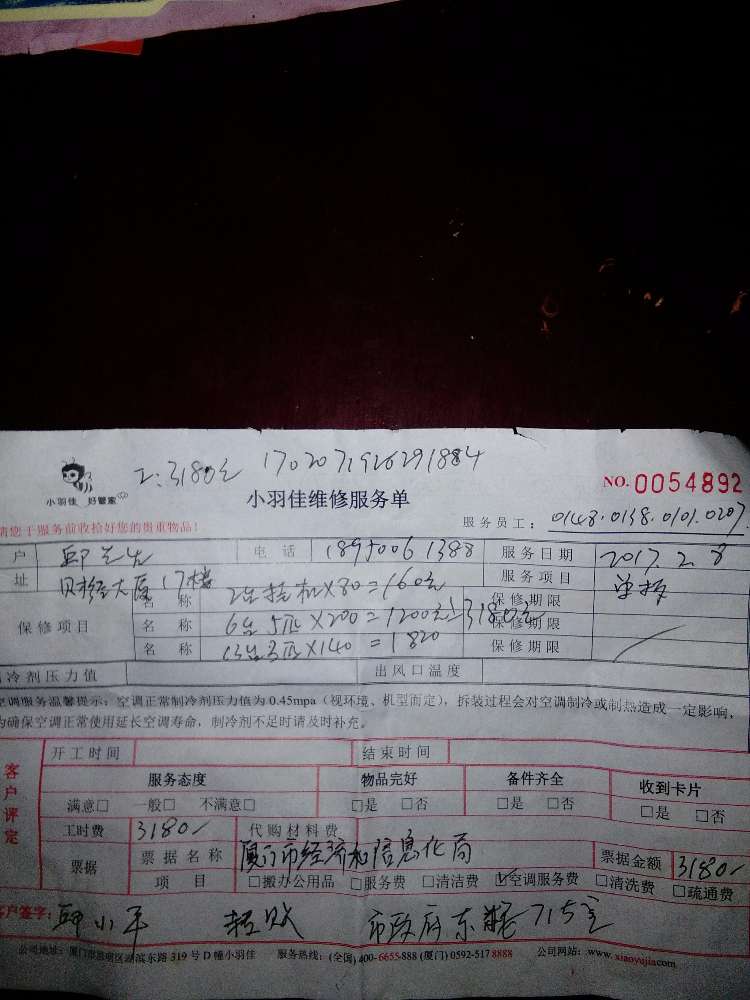 工:3180元 1702071926291884
小羽佳 好管家
小羽佳维修服务单
NO. 0054892
请您于服务前收拾好您的贵重物品!
服务员工: 0148.0138.0101.0207
户 邱 电话 18950061388 服务日期 2017.2.8
址 贝格大厦17楼 服务项目 单拆
保修项目
名称 2台挂机×80=160元 保修期限
名称 6台5匹×200=1200元 3180元 保修期限
名称 13台3匹×140=1820 保修期限
冷剂压力值 出风口温度
空调服务温馨提示:空调正常制冷剂压力值为0.45mpa(视环境、机型而定),拆装过程会对空调制冷或制热造成一定影响,
为确保空调正常使用延长空调寿命,制冷剂不足时请及时补充。
客户评定
开工时间 结束时间
服务态度 物品完好 备件齐全 收到卡片
满意□ 一般□ 不满意□ □是 □否 □是 □否 □是 □否
工时费 3180/ 代购材料费
票据 票据名称 厦门市经济和信息化局 票据金额 3180/
项目 □搬办公用品 □服务费 □清洁费 ☑空调服务费 □清洗费 □疏通费
客户签字: 邱小平 挂账 市政府东楼715室
公司地址:厦门市思明区湖滨东路319号D幢小羽佳 服务热线:(全国)400-6655-888 (厦门)0592-5178888 公司网站:www.xiaoyujia.com